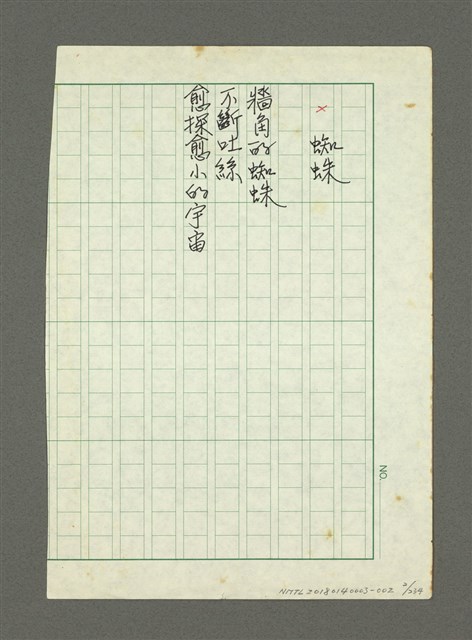 蜘蛛
×
牆角的蜘蛛
不斷吐絲
愈探愈小的宇宙
NO.
NMTL20180140003-002
2/234